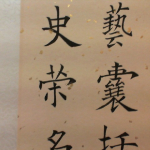 藝囊括
史荣名